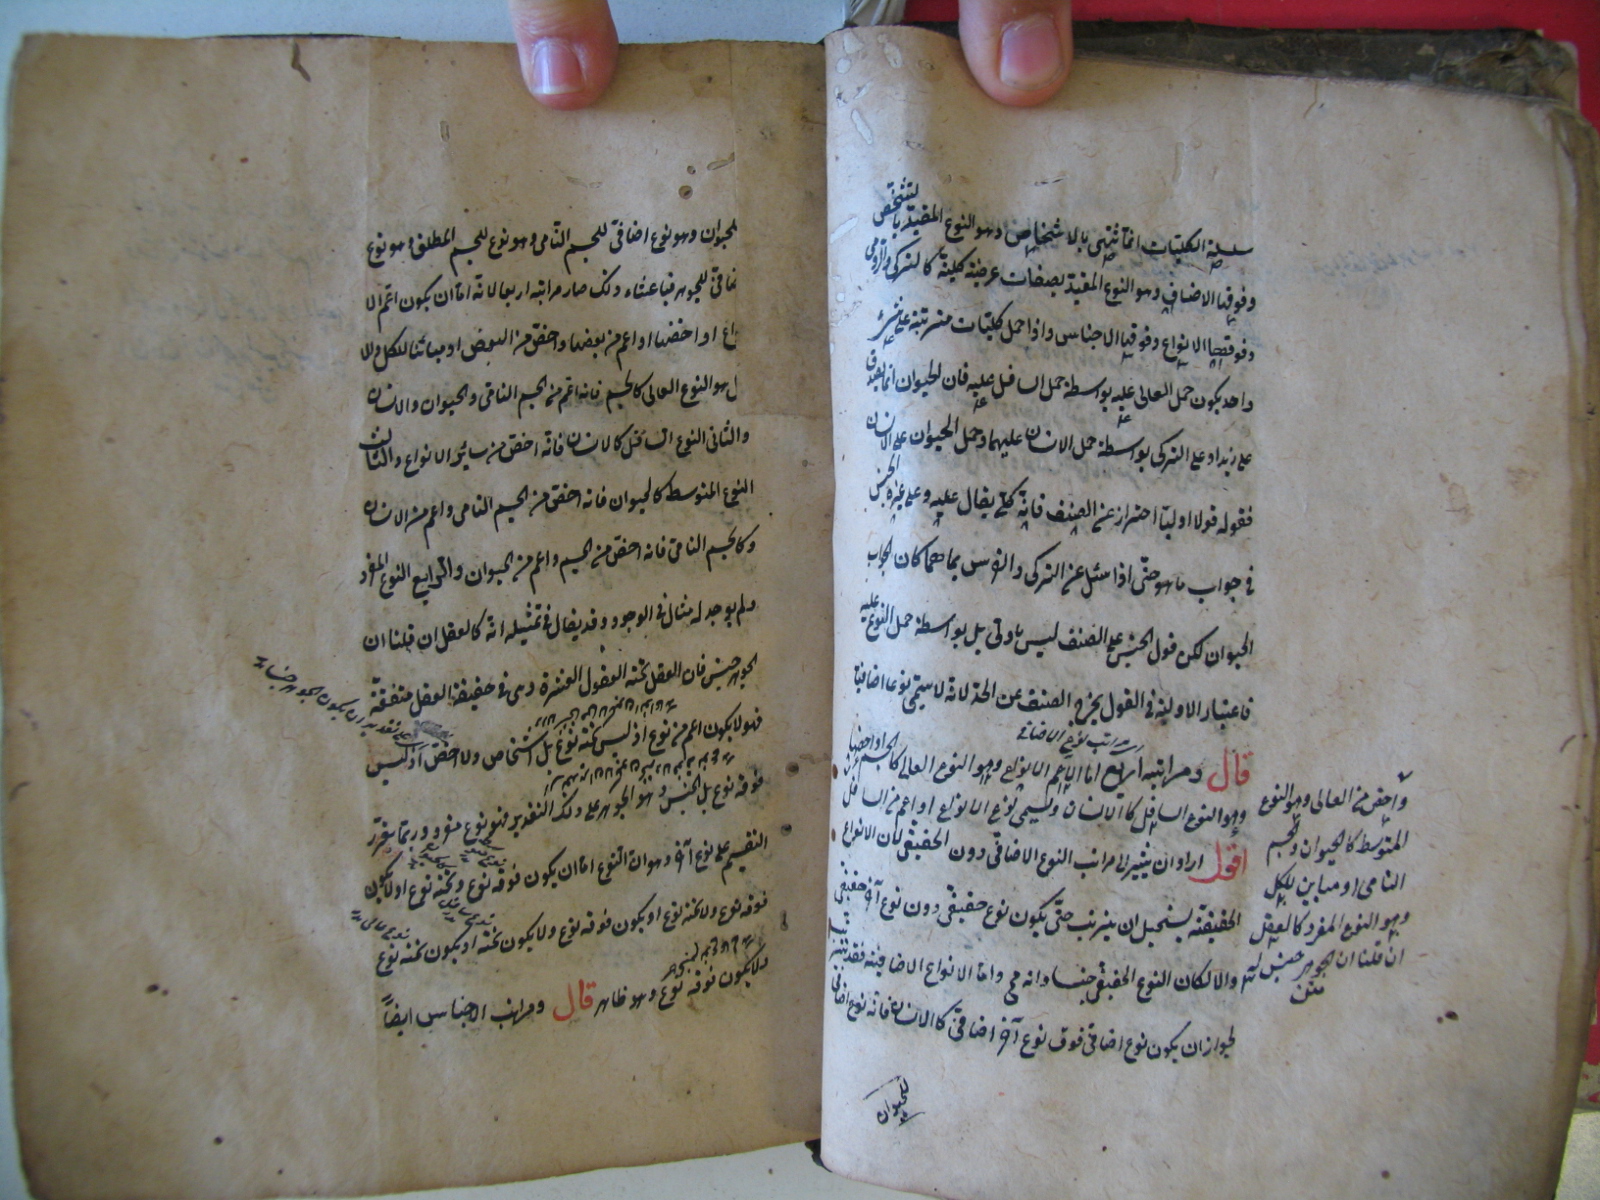 سلسلة الكليات انما تنتهي بالاشخاص وهو النوع المقيد بالتشخص
وفوقها الاصناف وهو النوع المقيد بصفات عرضية كلية كالتركي والرومي
وفوقها الانواع وفوقها الاجناس واذا حمل كليات مترتبة على شئ
واحد يكون حمل العالى عليه بواسطة حمل السافل عليه فان الحيوان انما يصدق
على زيد وعلى التركى بواسطة حمل الانسان عليهما وحمل الحيوان على الانسان
فقوله قولا اوليا احتراز عن الصنف فانه كلى يقال عليه وعلى غيره الجنس
فى جواب ما هو حتى اذا سئل عن التركى والفرس بما هما كان الجواب
الحيوان لكن قول الجنس على الصنف ليس باولى بل بواسطة حمل النوع عليه
فاعتبار الاولية فى القول يخرج الصنف عن الحد لانه لا يسمى نوعا اضافيا
مراتب نوع الاضافى
قال ومراتبه اربع اما اعم الانواع وهو النوع العالى كالجسم او اخصها
وهو النوع السافل كالانسان ويسمى نوع الانواع او اعم من السافل
واخص من العالى وهو النوع
المتوسط كالحيوان والجسم
النامى او مباين للكل
وهو النوع المفرد كالعقل
ان قلنا ان الجوهر جنس له
متن
اقول اراد ان يشير الى مراتب النوع الاضافى دون الحقيقى لان الانواع
الحقيقية يستحيل ان يترتب حتى يكون نوع حقيقى دون نوع آخر حقيقى
والا لكان النوع الحقيقى جنسا وانه مح واما الانواع الاضافية فقد تترتب
لجواز ان يكون نوع اضافى فوق نوع آخر اضافى كالانسان فانه نوع اضافى
للحيوان
الحيوان وهو نوع اضافى للجسم النامى وهو نوع للجسم المطلق وهو نوع
اضافى للجوهر فباعتبار ذلك صار مراتبه اربعا لانه اما ان يكون اعم الا
نواع او اخصها او اعم من بعضها واخص من البعض او مباينا للكل والا
ول هو النوع العالى كالجسم فانه اعم من الجسم النامى والحيوان والانسان
والثانى النوع السافل كالانسان فانه اخص من سائر الانواع والثالث
النوع المتوسط كالحيوان فانه اخص من الجسم النامى واعم من الانسان
وكالجسم النامى فانه اخص من الجسم واعم من الحيوان والرابع النوع المفرد
ولم يوجد له مثال فى الوجود وقد يقال فى تمثيله انه كالعقل ان قلنا ان
الجوهر جنس فان العقل تحته العقول العشرة وهى فى حقيقة العقل متفقة
فهو لا يكون اعم من نوع اذ ليس تحته نوع بل اشخاص ولا اخص اذ ليس
فوقه نوع بل الجنس وهو الجوهر على ذلك التقدير فهو نوع مفرد وربما يقرر
التقسيم على نوع آخر وهو ان النوع اما ان يكون فوقه نوع وتحته نوع او لا يكون
فوقه نوع ولا تحته نوع او يكون فوقه نوع ولا يكون تحته او يكون تحته نوع
ولا يكون فوقه نوع وهو ظاهر قال ومراتب الاجناس ايضا